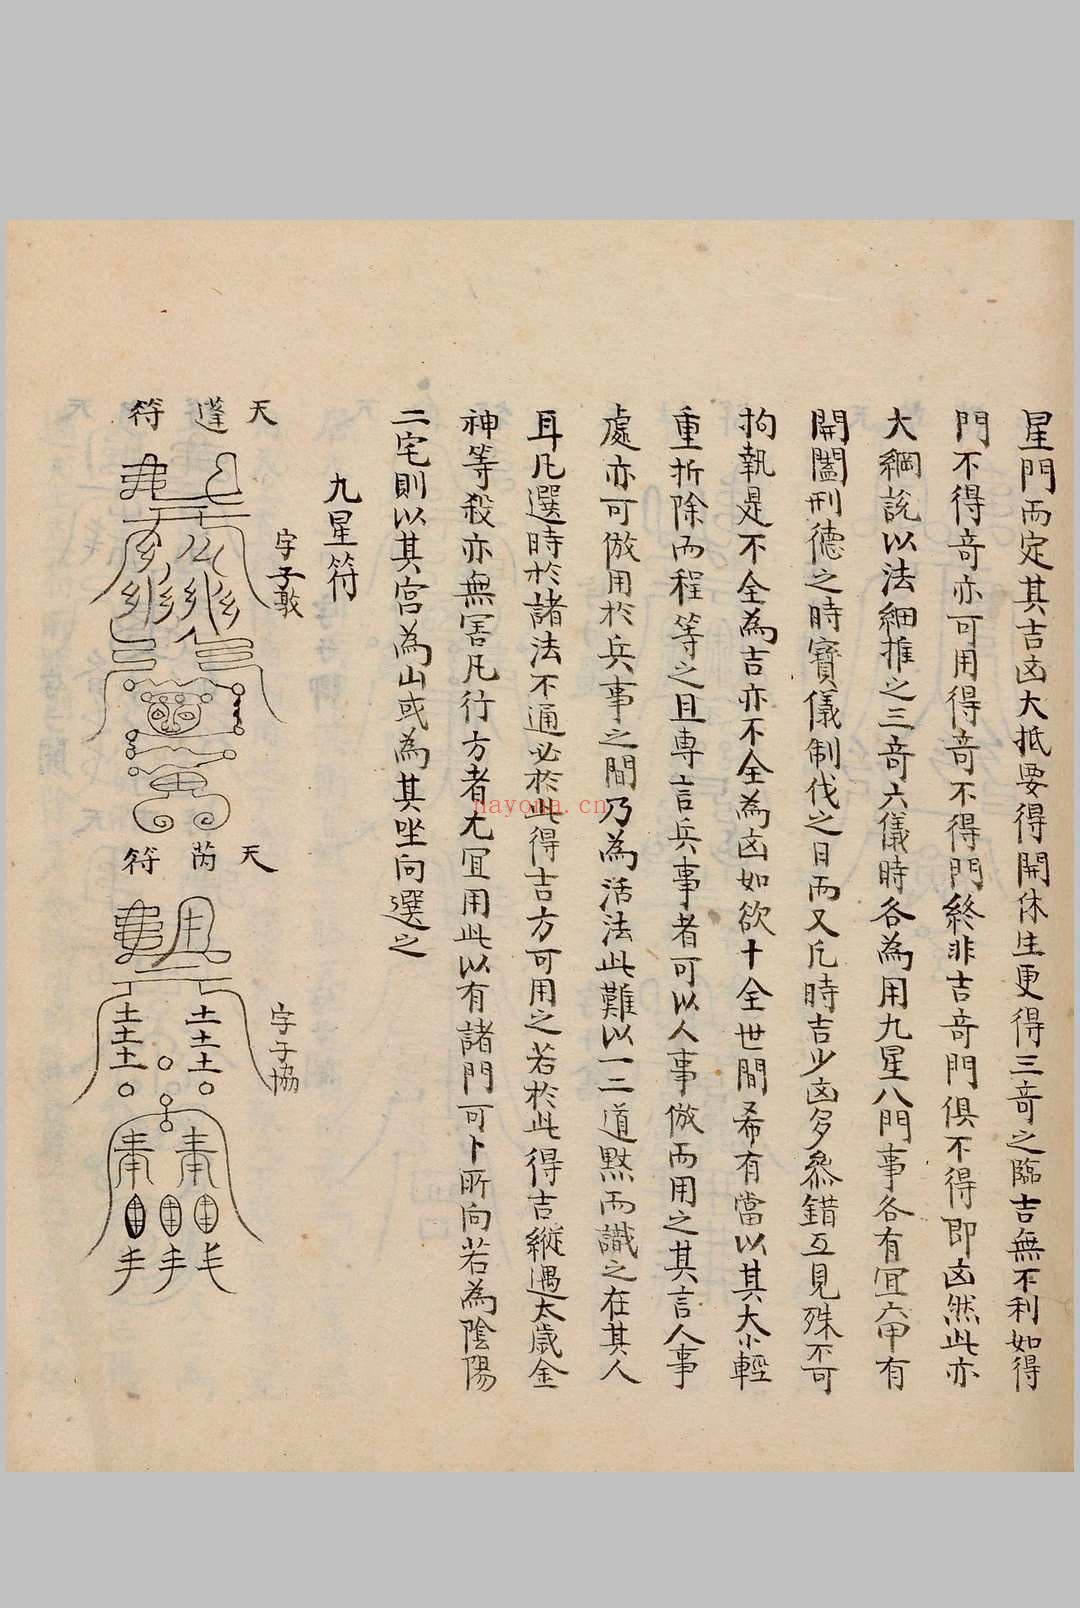 星門而定其吉凶大抵要得開休生更得三奇之臨吉無不利如得
門不得奇亦可用得奇不得門終非吉奇門俱不得即凶然此亦
大綱說以法細推之三奇六儀時各為用九星八門事各有宜六甲有
開闔刑德之時寶儀制伐之日而又凡時吉少凶多叅錯互見殊不可
拘執是不全為吉亦不全為凶如欲十全世間希有當以其大小輕
重折除而程等之且專言兵事者可以人事倣而用之其言人事
處亦可倣用於兵事之間乃為活法此難以一二道黙而識之在其人
耳凡選時於諸法不通必於此得吉方可用之若於此得吉縱遇太歲金
神等殺亦無害凡行方者尤冝用此以有諸門可卜所向若為陰陽
二宅則以其宮為山或為其坐向選之
九星符
天蓬符
字子敢
天芮符
字子協
nayona.cn